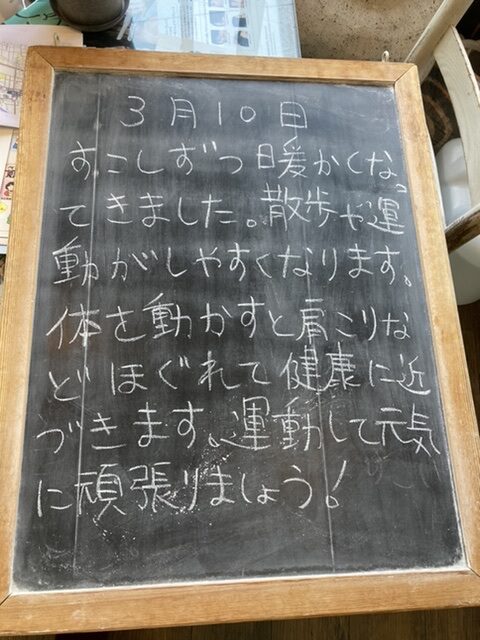 3月10日
すこしずつ暖かくなっ
てきました。散歩や運
動がしやすくなります。
体を動かすと肩こりな
どほぐれて健康に近
づきます。運動して元気
に頑張りましょう!